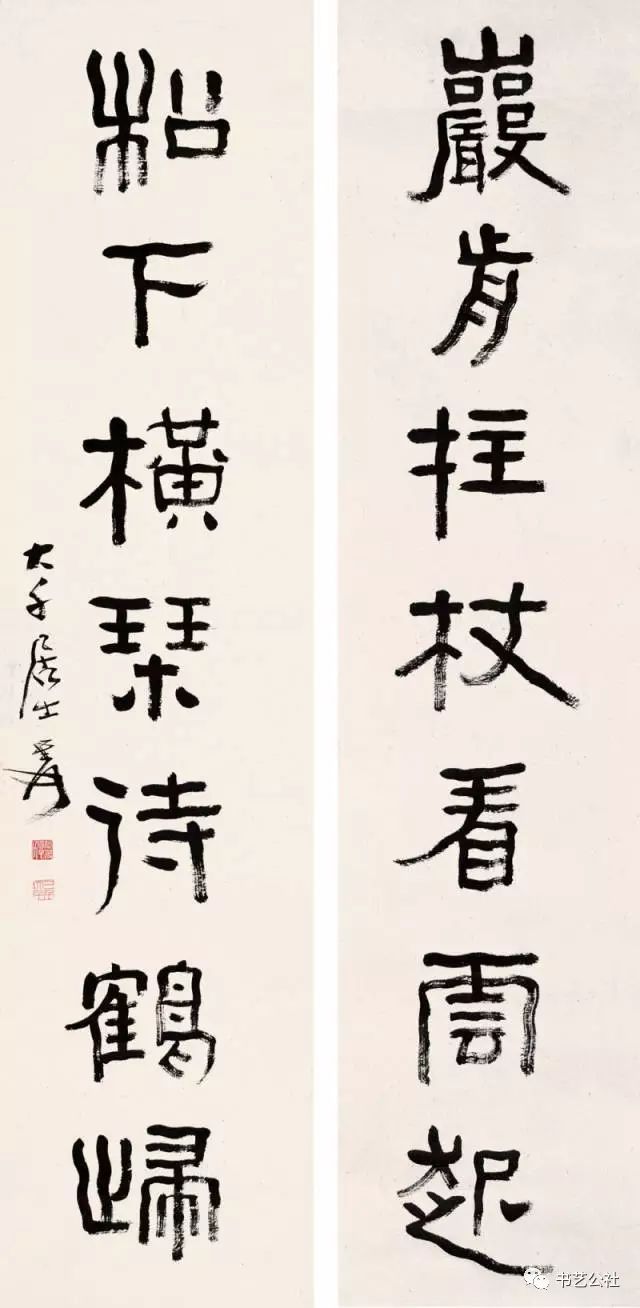 巖前拄杖看雲起
松下橫琹待鶴歸
大千居士爰
书艺公社